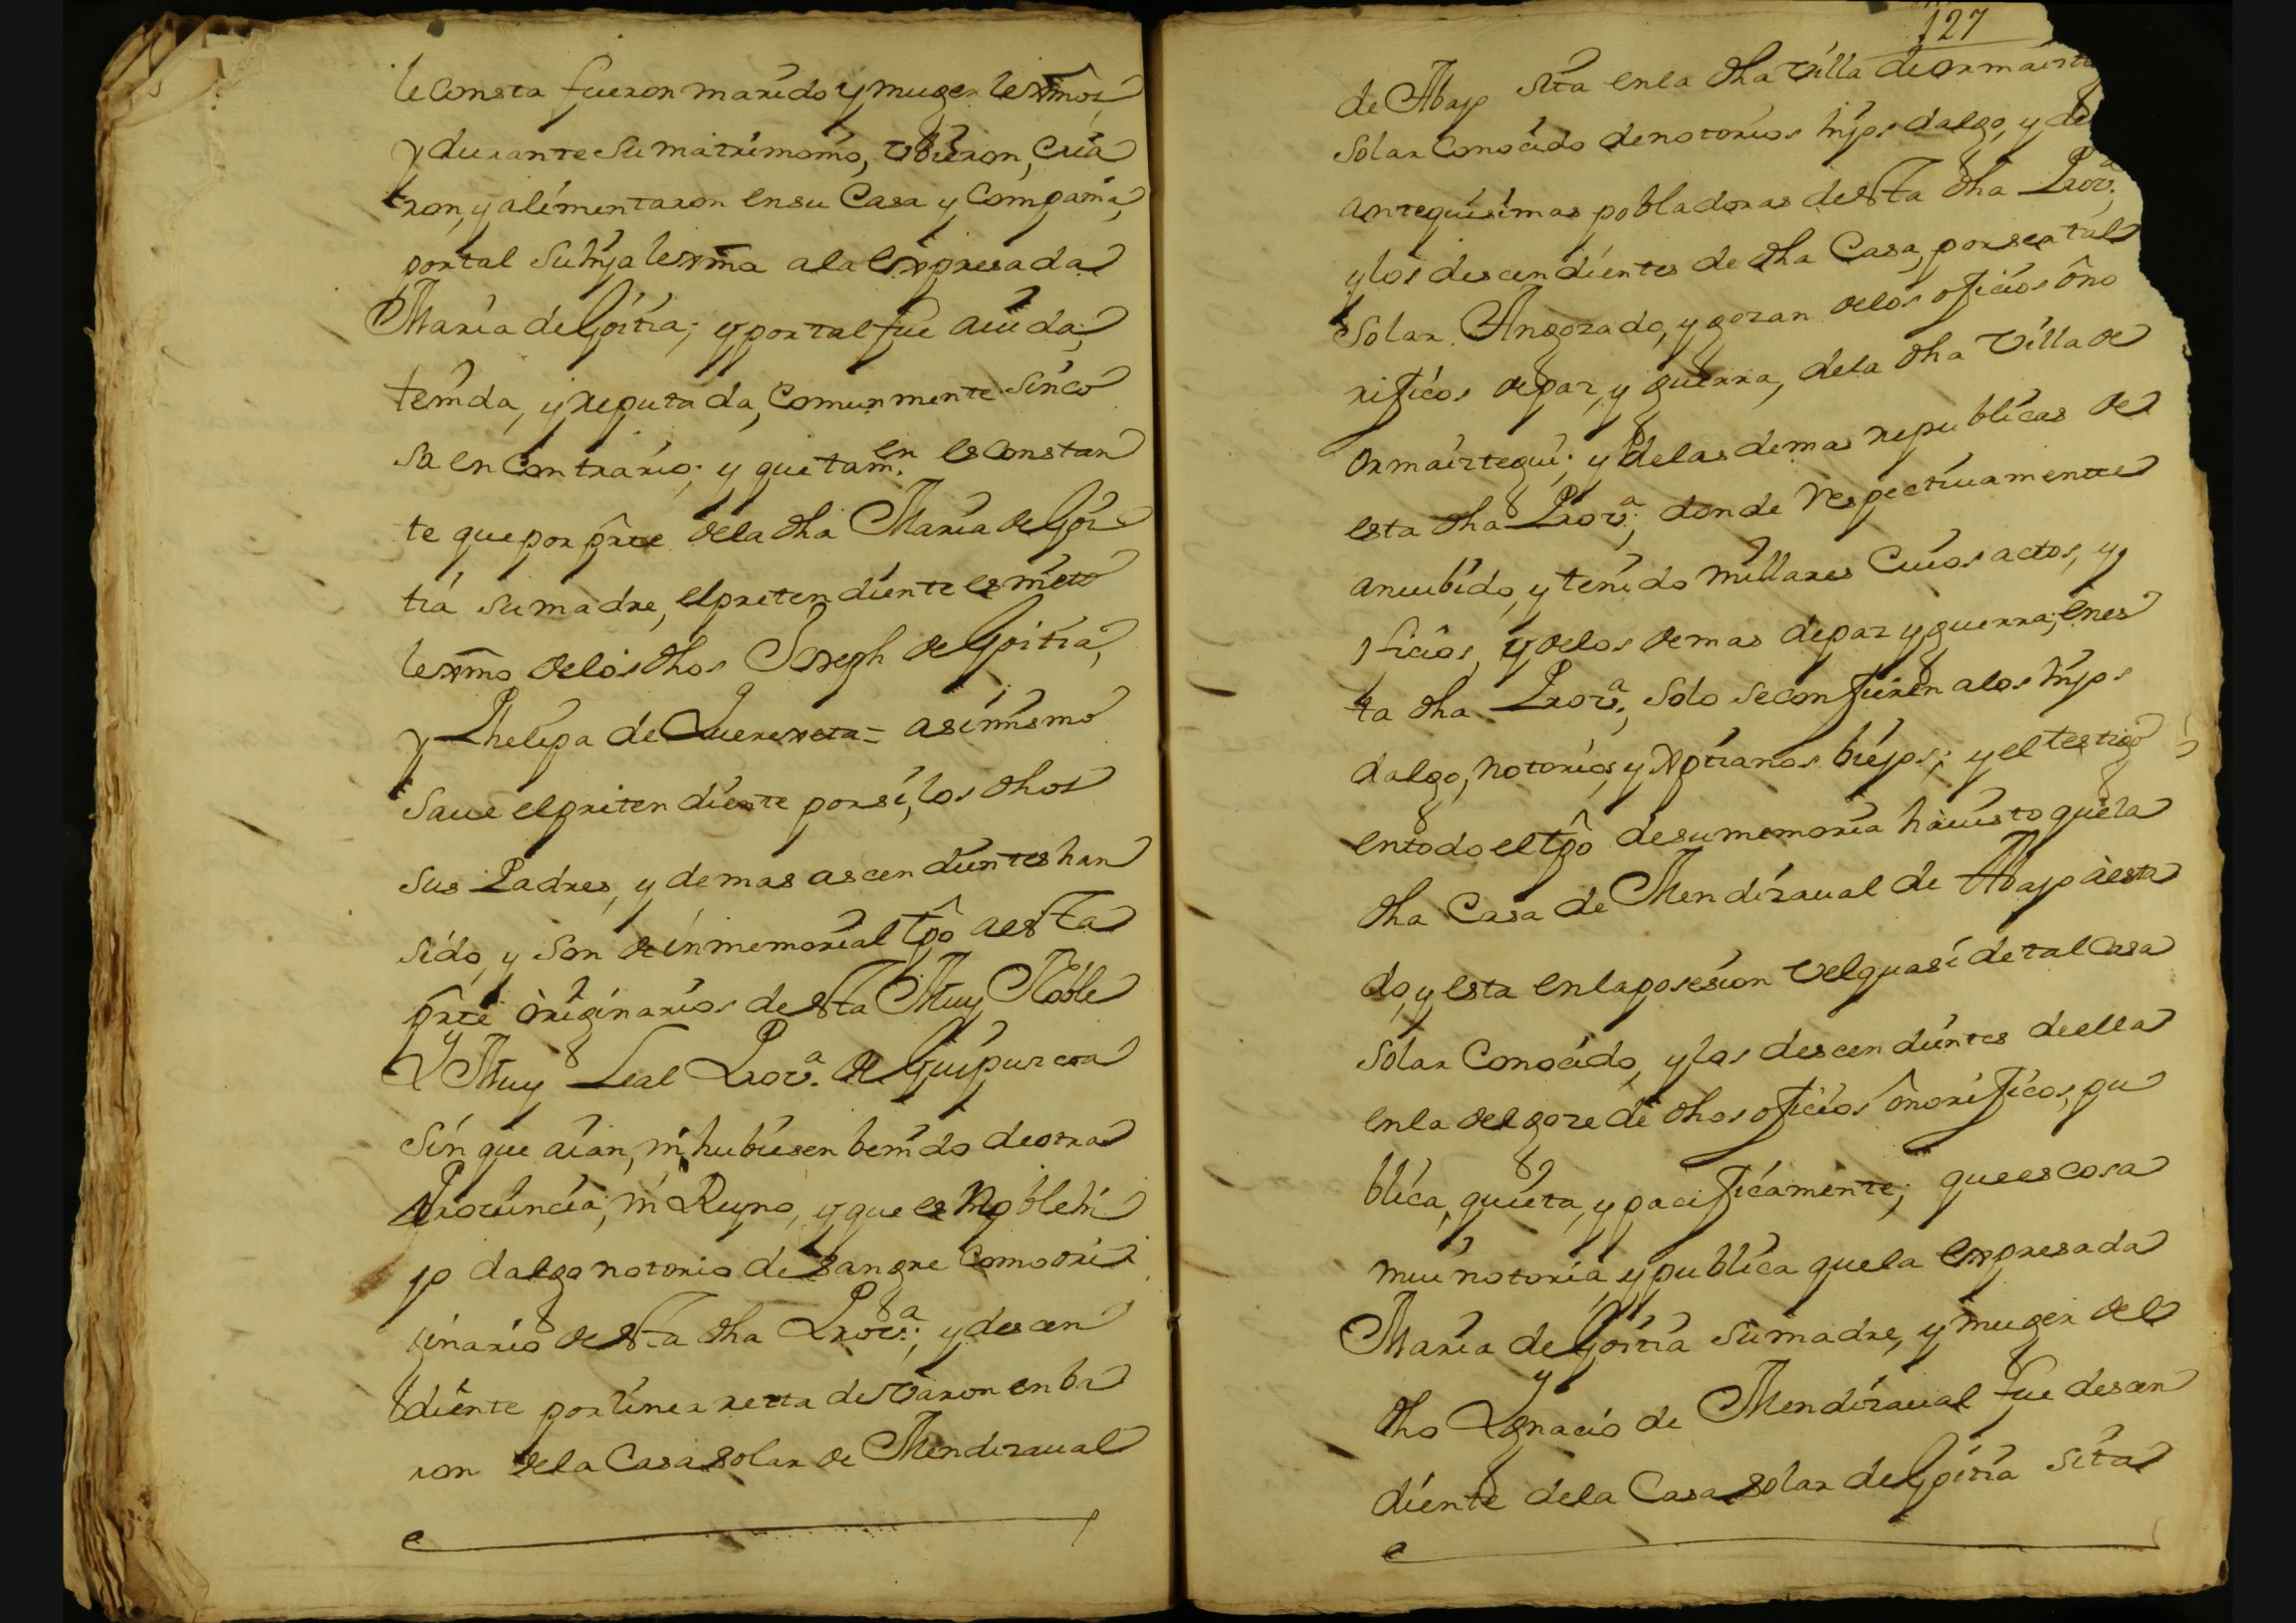 le consta fueron marido y muger lexmos
y durante su matrimonio, vbieron, cria
ron, y alimentaron en su Casa y Compania,
por tal su hija lexma a la expresada
Maria de Goitia; y por tal fue auida,
tenida, y reputada, Comunmente sin co
sa en Contrario; y que tamen. es Constan
te que por prte de la dha Maria de Goi
tia su madre, el pretendiente es nieto
lexmo de los dhos Joseph de Goitia,
y Phelipa de Querexeta = asimismo
saue el pritendiente por si, los dhos
sus Padres, y demas ascendientes han
sido, y son de inmemorial tpo a esta
prte originarios de esta Muy Noble
Y Muy Leal Prova. de Guipuzcoa
sin que aian, ni hubiesen benido de otra
Prouincia, ni Reyno, y que es Noble hi
jo dalgo notorio de sangre como ori
ginario de esta dha Prova.; y descen
diente por linea retta de varon en ba
ron de la Casa solar de Mendizaual
127
de Abajo sita en la dha villa de Ormaizte
Solar Conocido de notorios hijos dalgo, y de
antequisimas pobladoras de esta dha Prova.,
y los descendientes de dha Casa, por ser tal
Solar. An gozado, y gozan de los oficios ôno
rificos de paz, y guerra, de la dha Villa de
Ormaiztegui; y de las demas republicas de
esta dha Prova.; donde respectiuamente
an uibido, y tenido millares Cuios actos, y
oficios, y de los demas de paz y guerra; en es
ta dha Prova., solo se confieren a los hijos
dalgo, notorios, y Xptianos biejos; y el testigo
en todo el tpo de su memoria ha uisto que la
dha Casa de Mendizaual de Abajo à esta
do, y esta en la posesion vel quasi de tal Casa
Solar Conocido, y los descendientes de ella
en la del goze de dhos oficios ônorificos, pu
blica, quieta, y pacificamente; que es cosa
mui notoria, y publica que la expresada
Maria de Goitia su madre, y muger del
dho Ygnacio de Mendizaual fue descen
diente de la Casa solar de Goitia sita